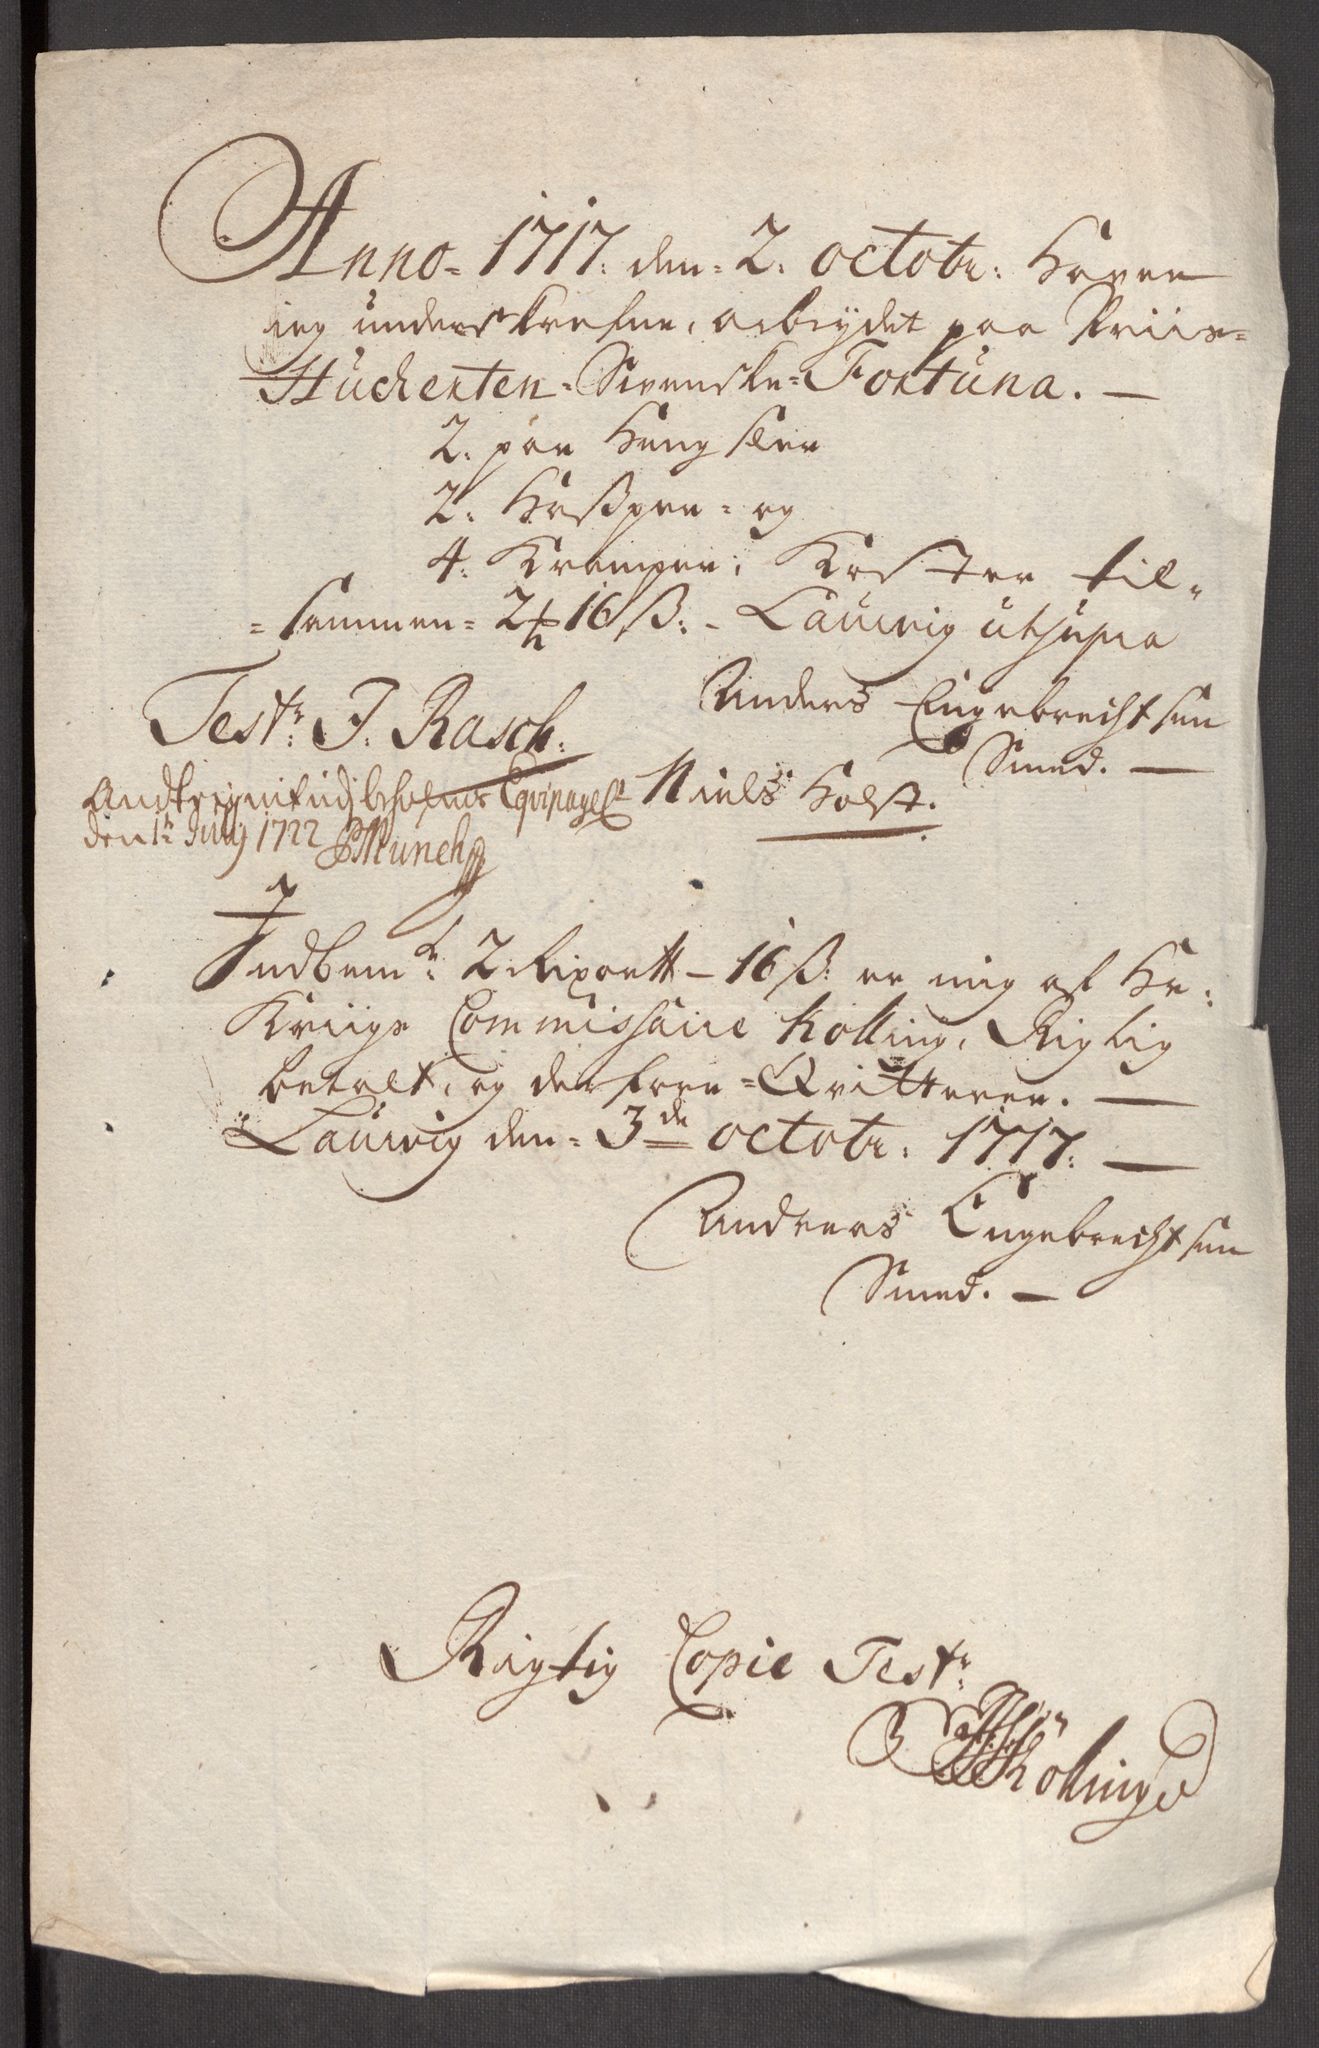 Anno 1717. den 2. octobr: Haver
ieg underskrefne, arbeydet paa Priis-
Huckerten Svenske Fortuna. —
2. par Hengsler
2. Haßper og
4. Kramper, Koster til-
sammen 2 16 ß: Laurvig ut supra
Anders Engebrechtsen
Smed. —
Test: J. Rasch.
Niels Holst.
Equipage
den 1 July 1722 Munch
Indbem: 2 Rixort 16 ß: er mig af Hr:
Kriigs Commissaire Kolling, Rigtig
betalt, og derfore Qvitterer. —
Laurvig den 3de octobr. 1717. —
Anders Engebrechtsen
Smed. —
Rigtig Copie Test:
Kolling